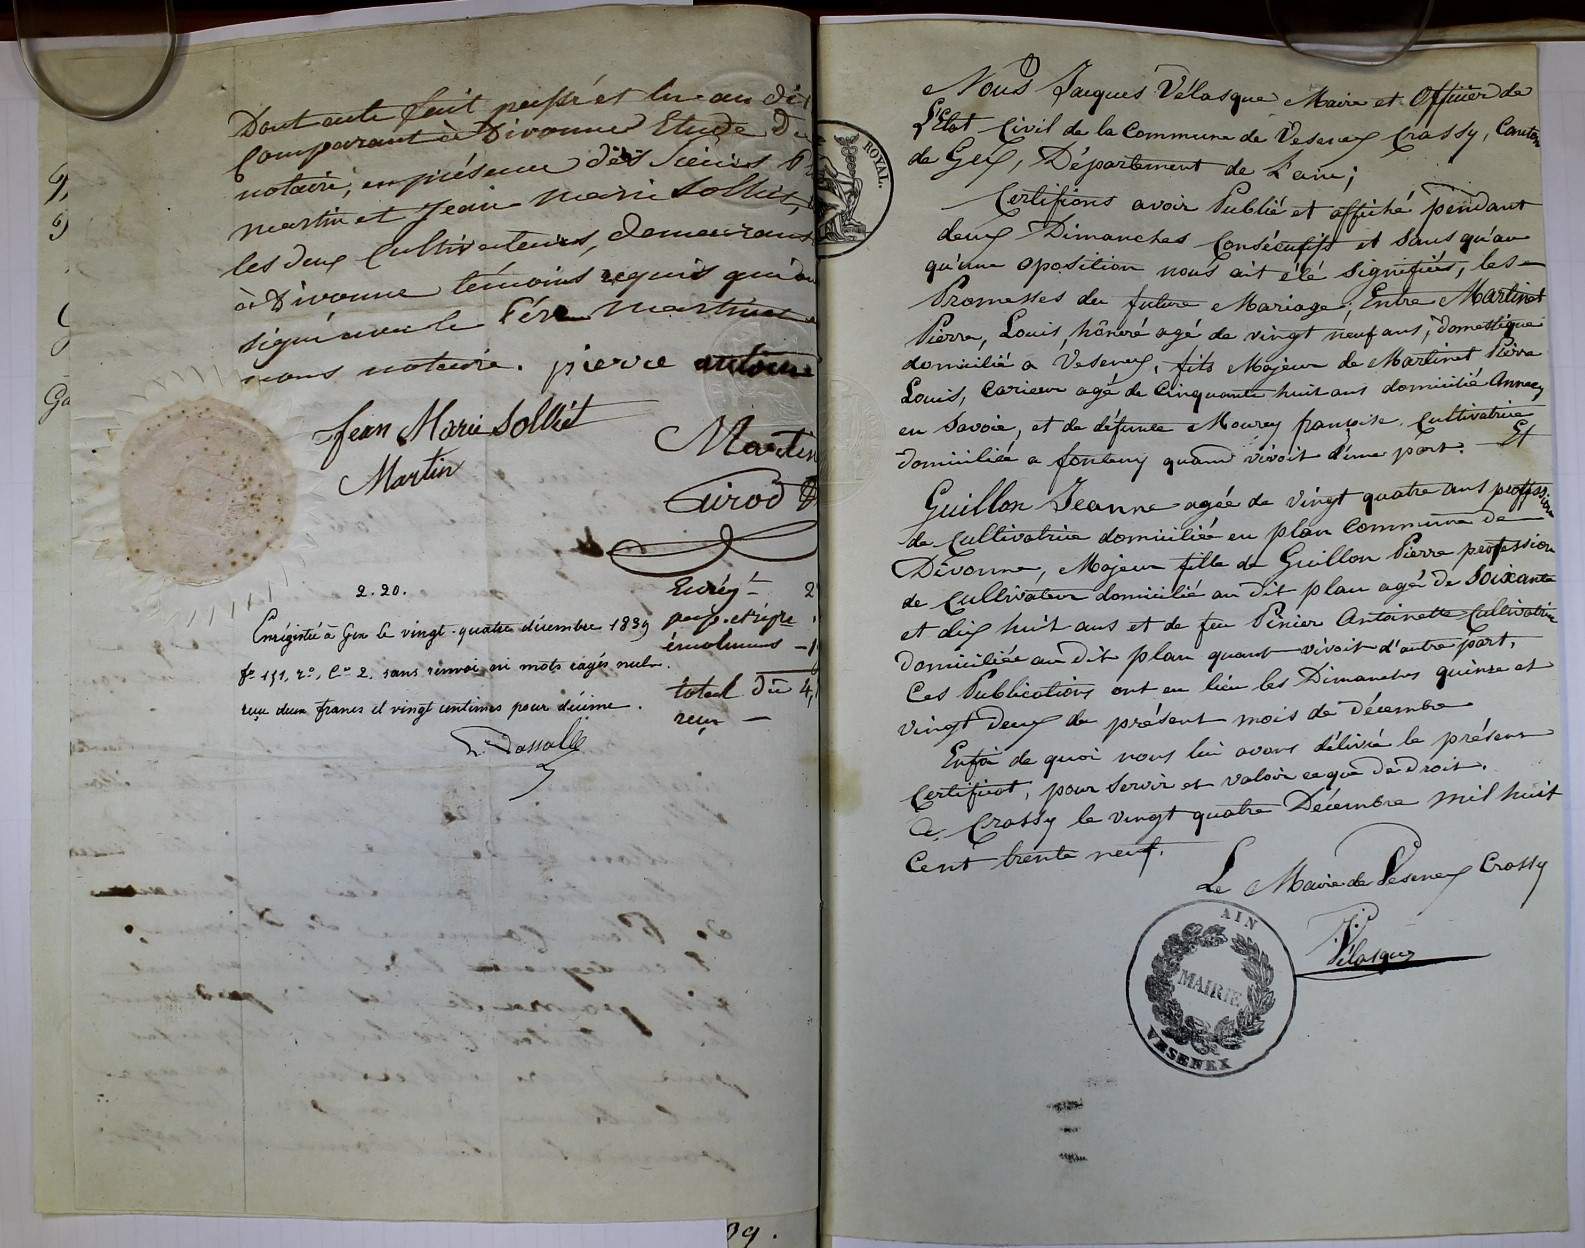 Dont acte fait passé et lu au dit
Comparant à Divonne Etude de
notaire, en présence des Sieurs
martin et Jean marie Solliet,
les deux Cultivateurs, demeurant
à Divonne témoins requis qui ont
signé avec le Père Martinet
nous notaire. pierre antoine
Jean Marie Solliet
Martin
Martin
Girod
Enrég.t 2
pap. et
émolumens - 1
total Dû 4,
reçu -
2.20.
Enrégistré à Gex le vingt-quatre décembre 1839
fo 151. ro. Ce 2. sans renvoi ni mots rayés nuls.
reçu deux francs et vingt centimes pour décime.
Dassalle
ROYAL.
Nous Jacques Vélasque Maire et Officier de
L'Etat Civil de la Commune de Vesenex Crassy, Canton
de Gex, Département de L'ain;
Certifions avoir Publié et affiché pendant
deux Dimanches Consécutifs et Sans qu'au
qu'une oposition nous ait été signifiées, les
Promesses du future Mariage; Entre Martinet
Pierre, Louis, hônoré agé de vingt neuf ans, domestique
domicilié a Vesenex, fils Majeur de Martinet Pierre
Louis, Carieur agé de Cinquante huit ans domicilié Annecy
en Savoie, et de défunte Mourey françoise Cultivatrice
domiciliée a fonteny quand vivoit d'une part. Et
Guillon Jeanne agée de vingt quatre ans proffession
de Cultivatrice domiciliée en plan Commune de
Divonne, Majeur fille de Guillon Pierre profession
de Cultivateur domicilié au dit plan agé de Soixante
et dix huit ans et de feu Pinier Antoinette Cultivatrice
domiciliée au dit plan quant vivoit d'autre part,
Ces Publications ont eu lieu les Dimanches quinze et
vingt Deux du présent mois de Décembre
Enfoi de quoi nous lui avons délivré le présent
Certificat, pour Servir et valoir ce que de droit.
A Crassy le vingt quatre Décembre mil huit
Cent trente neuf.
Le Maire de Vesenex Crassy
Vélasque
AIN
MAIRIE
VESENEX
39.